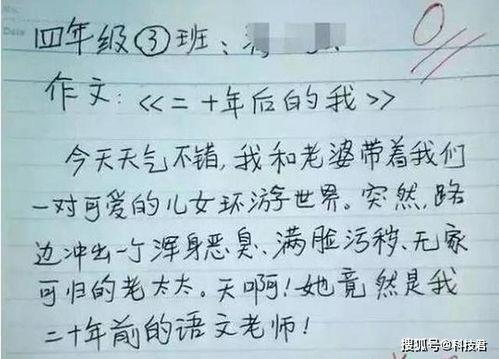 四年级③班：
0
作文：《二十年后的我》
今天天气不错，我和老婆带着我们
一对可爱的儿女环游世界。突然，路
边冲出一个浑身恶臭、满脸污秽、无家
可归的老太太。天啊！她竟然是我
二十年前的语文老师！
搜狐号@科技君